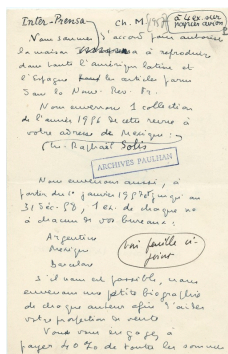 Inter-Prensa
Ch. M.
à 4 ex. sur
papier avion
Nous sommes d'accord pour autoriser
la maison à reproduire
dans toute l'amérique latine et
l'Espagne les articles parus
dans la Nouv. Rev. Fr.
Nous enverrons 1 collection
de l'année 1956 de cette revue à
votre adresse de Mexique :
Ch. Raphaël Solis
ARCHIVES PAULHAN
Nous enverrons aussi, à
partir du 1er janvier jusqu'au
31 Déc. 1 ex. de chaque no
à chacun de vos bureaux :
Argentine
Mexique
voir feuille ci-
jointe
S'il nous est possible, nous
enverrons une petite biographie
de chaque auteur afin d'aider
votre prospection de vente
Vous vous engagez à
payer 40% de toutes les sommes